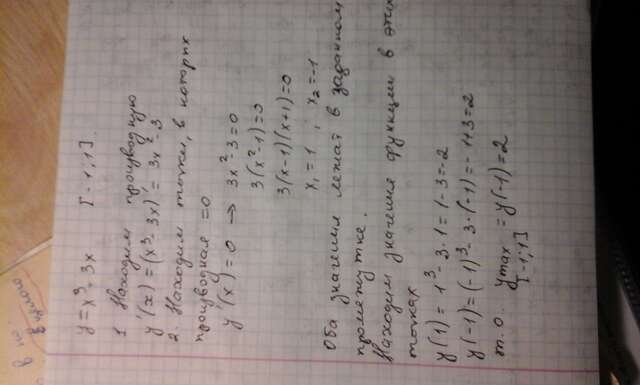 y = x³ - 3x [-1; 1]
1 Находим производную
y'(x) = (x³ - 3x)' = 3x² - 3
2. Находим точки, в которых
производная = 0
y'(x) = 0 → 3x² - 3 = 0
3(x² - 1) = 0
3(x - 1)(x + 1) = 0
x₁ = 1 ; x₂ = -1
Оба значения лежат в заданном
промежутке.
Находим значение функции в этих
точках
y(1) = 1³ - 3·1 = 1 - 3 = -2
y(-1) = (-1)³ - 3·(-1) = -1 + 3 = 2
т.о. ymax = y(-1) = 2
[-1; 1]